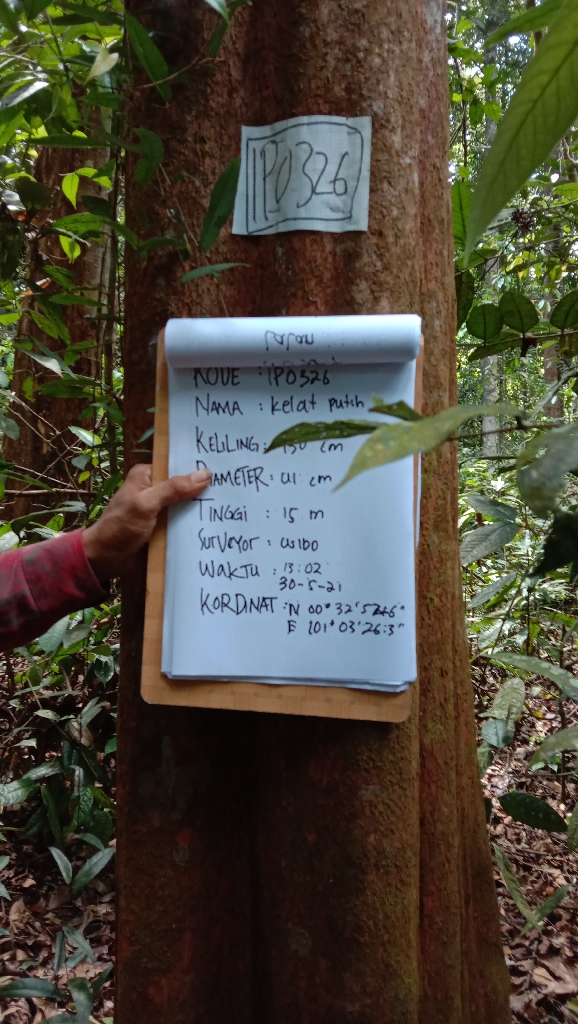 IPO326
KODE : IPO326
NAMA : Kelat putih
KELILING : 130 cm
DIAMETER : 41 cm
TINGGI : 15 m
Surveyor : WIBO
WAKTU : 13:02
30-5-21
KORDINAT : N 00° 32' 52.46"
E 101° 03' 26.3"